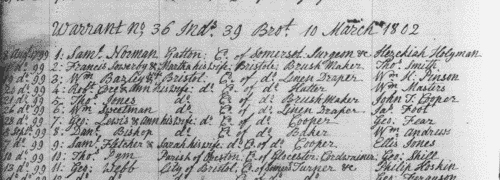 Warrant No. 36 Ind. 39 Bro.t 10 March 1802
1: Sam.l Norman Yatton C.o of Somerset Surgeon & Hezekiah Holyman
d.o 99 2: Francis & Martha his wife: Bristol: Brush Maker Tho.s Smith
d.o 99 3: W.m Bazley d.o Bristol C.o of d.o Linen Draper W.m K. Pinson
d.o 99 4: Rob.t & Ann his wife: d.o C.o of d.o Hatter W.m Masters
d.o 99 5: Tho.s Jones d.o C.o of d.o Brush Maker John T. Cooper
d.o 99 6: W.m Sweetman d.o C.o of d.o Linen Draper Jos. Foot
d.o 99 7: Geo: Lewis & Ann his wife: d.o C.o of d.o Cooper Geo: Fear
99 8: Dan.l Bishop d.o C.o of d.o Baker W.m Andrews
7 d.o 99 9: Sam.l Fletcher & Sarah his wife: d.o C.o of d.o Cooper Ellis Jones
10 d.o 99 10: Tho.s Pym Parish of Weston C.o of Glocester Cordwainer Geo: Skilt
13 d.o 99 11: Geo: Webb City of Bristol, C.o of Turner & Philip Hoskin
d.o Geo: Ferguson